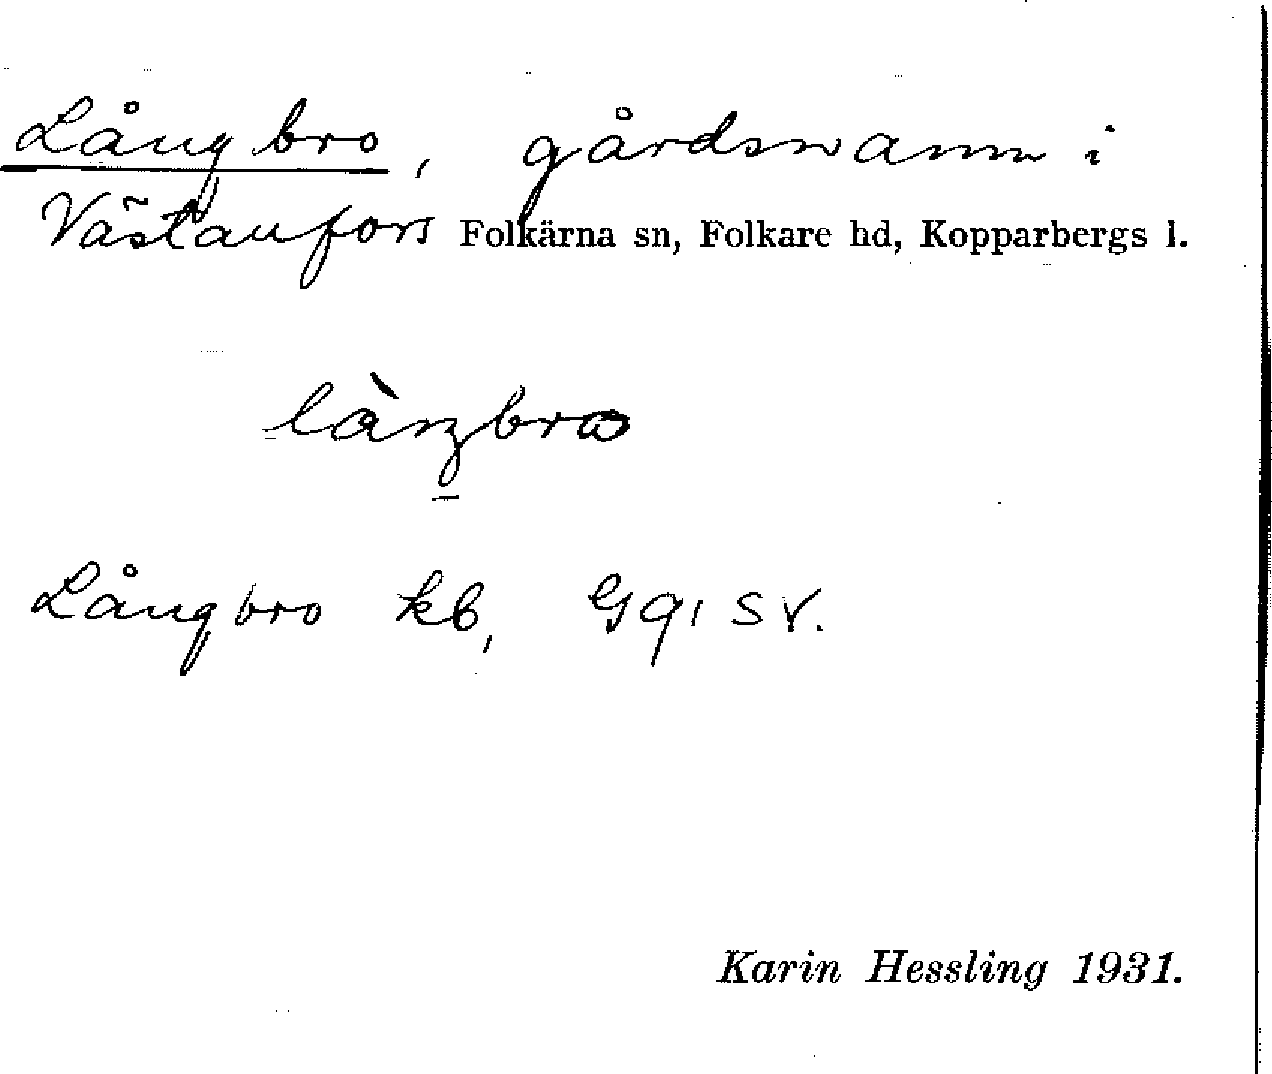 Långbro, gårdsnamn i
Västanfors Folkärna sn, Folkare hd, Kopparbergs l.
Långbro kb, Gg, SV.
Karin Hessling 1931.